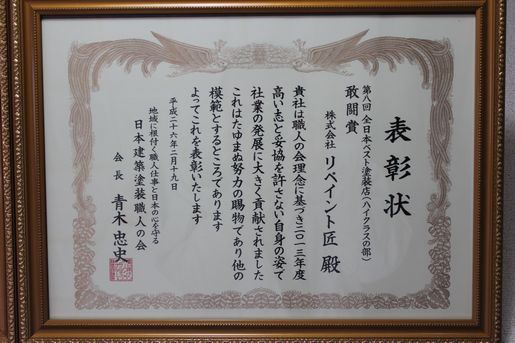 表彰状
第八回 全日本ベスト塗装店(ハイクラスの部)
敢闘賞
株式会社 リペイント匠 殿
貴社は職人の会理念に基づき二〇一三年度
高い志と妥協を許さない自身の姿で
社業の発展に大きく貢献されました
これはたゆまぬ努力の賜物であり他の
模範とするところであります
よってこれを表彰いたします
平成二十六年二月十九日
地域に根付く職人仕事と日本の心を守る
日本建築塗装職人の会
会長 青木忠史